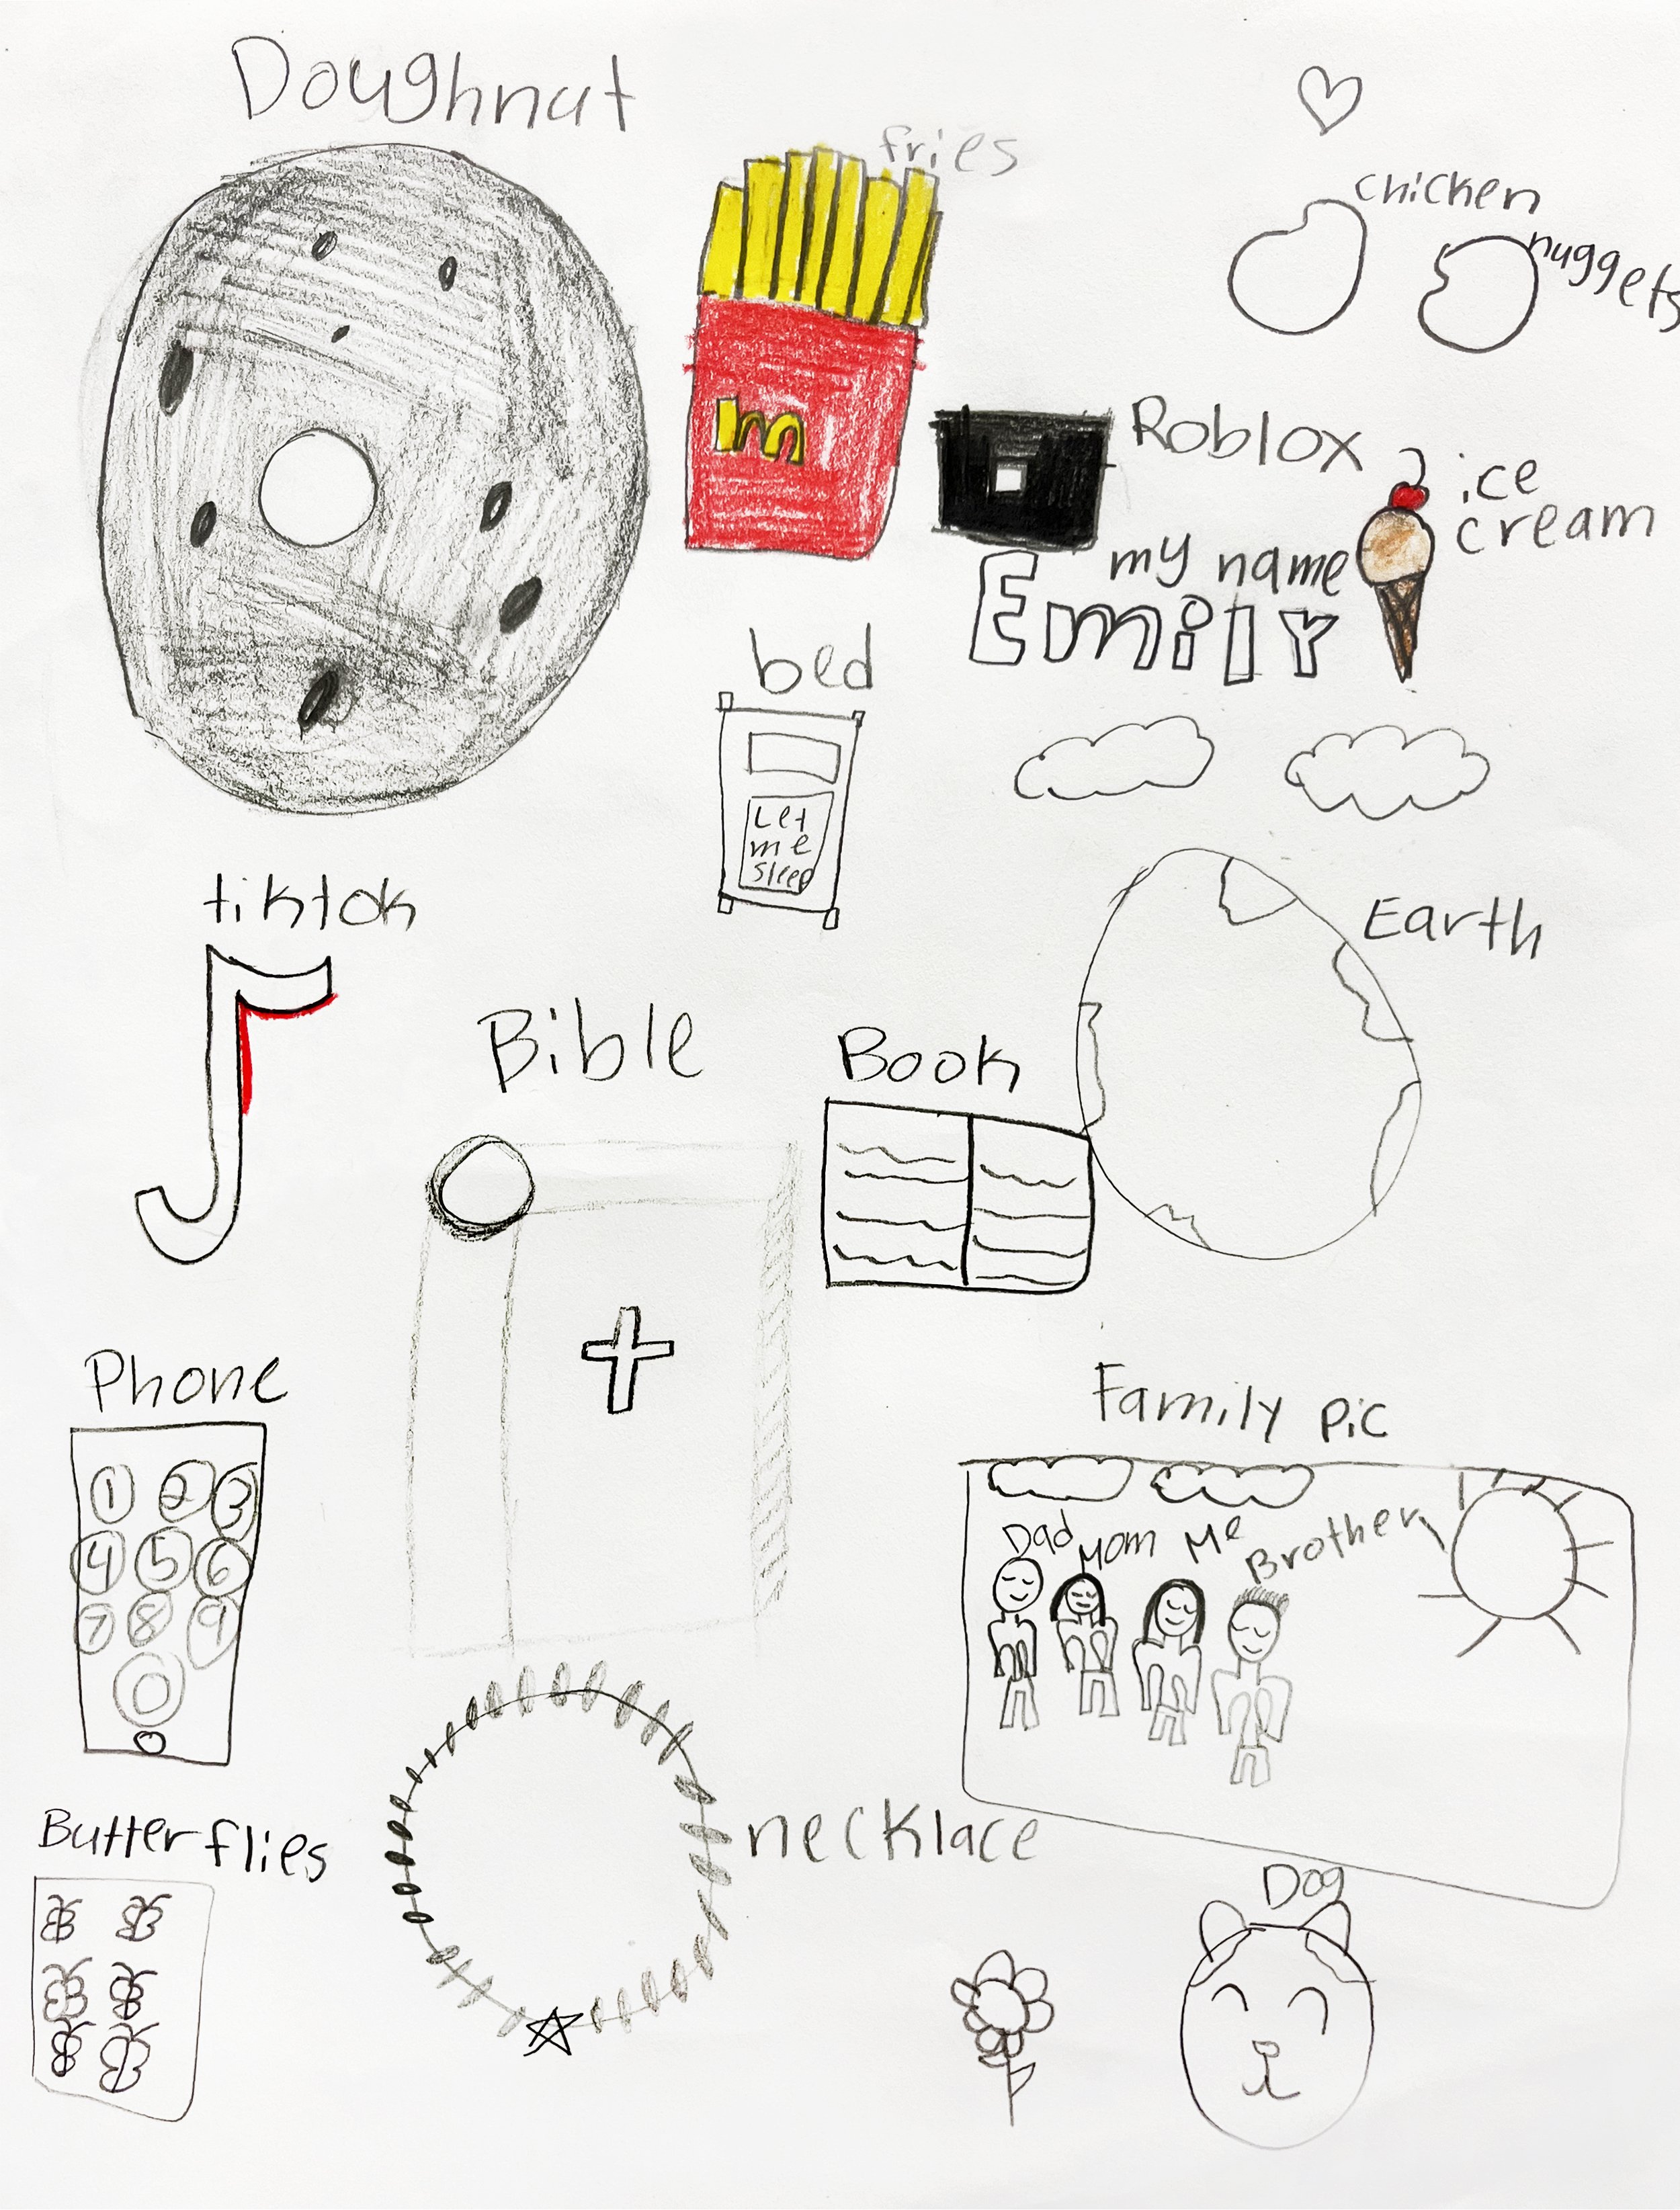 Doughnut
fries
chicken
nuggets
m
Roblox
ice
cream
my name
Emily
bed
Let
me
sleep
tiktok
Earth
Bible
Book
Phone
1 2 3
4 5 6
7 8 9
0
Family Pic
Dad Mom Me Brother
Butterflies
necklace
Dog